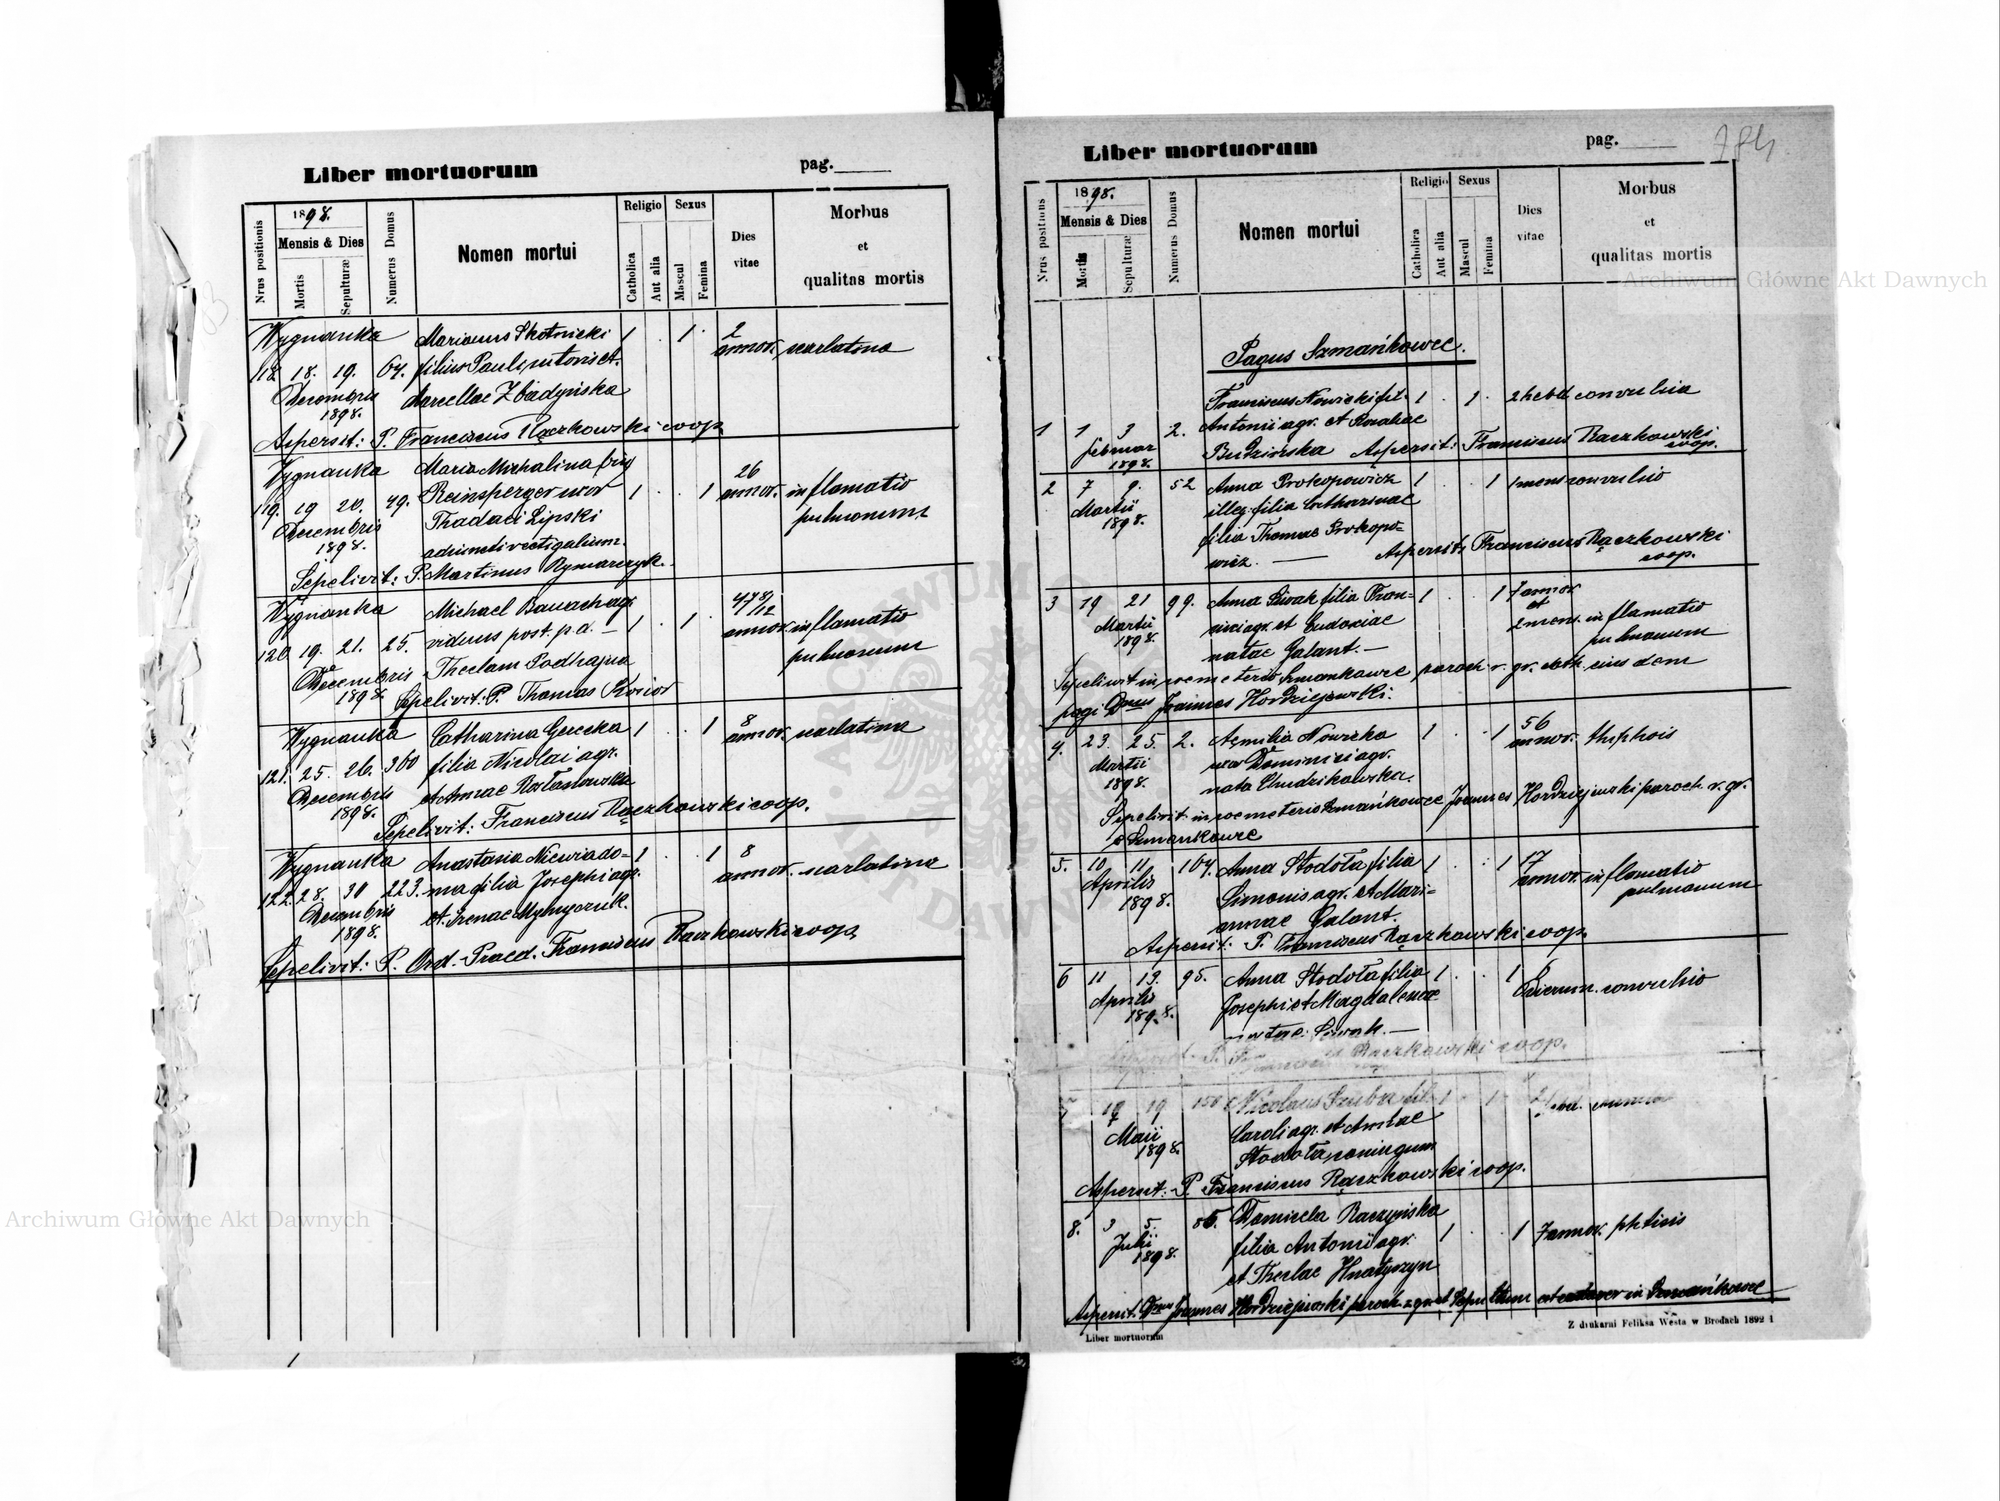 Liber mortuorum
pag.
Nrus positionis
1898.
Mensis & Dies
Mortis
Sepulturæ
Numerus Domus
Nomen mortui
Religio
Catholica
Aut alia
Sexus
Mascul
Femina
Dies
vitae
Morbus
et
qualitas mortis
Wygnanka Marianus Skotnicki 1 1 2
118 18. 19. 64. filius Pauli et annor. scarlatina
Decembris Marcellae Zbadyńska
1898.
Aspersit: P. Franciscus Rączkowski coop.
Wygnanka Maria Michalina 26
119. 19 20. 49. Reinsperger uxor 1 1 annor. inflamatio
Decembris Thadaei Lipski pulmonum
1898. adiuncti vectigalium.
Sepelivit: P. Martinus Rymarczyk.
Wygnanka Michael Banach agr. 47 8/12
120 19. 21. 25. viduus post. p. d. — 1 1 annor. inflamatio
Decembris Theclam Podhajna pulmonum
1898. Sepelivit: P. Thomas
Wygnanka Catharina 1 1 8
121. 25. 26. 360 filia Nicolai agr. annor. scarlatina
Decembris et Annae
1898.
Sepelivit: Franciscus Rączkowski coop.
Wygnanka Anastasia Niewiado- 1 1 8
122. 28. 30 223. ma filia Josephi agr. annor. scarlatina
Decembris et Irenae
1898.
Sepelivit: P. Ord. Praed. Franciscus Rączkowski coop.
Liber mortuorum
pag.
784
Nrus positionis
1898.
Mensis & Dies
Mortis
Sepulturæ
Numerus Domus
Nomen mortui
Religio
Catholica
Aut alia
Sexus
Mascul
Femina
Dies
vitae
Morbus
et
qualitas mortis
Pagus Szmańkowce.
Franciscus Nowicki fil. 1 1 2 hebd convulsio
1 1 3 2. Antonii agr. et Rosaliae
Februar Budzińska Aspersit: Franciscus Rączkowski
1898. coop.
2 7 9. 52 Anna Prokopowicz 1 1 1 mens convulsio
Martii illeg. filia Catharinae
1898. filia Thomae Prokopo-
wicz. — Aspersit: Franciscus Rączkowski
coop.
3 19 21 99. Anna Siwak filia Fran- 1 1 7 annor.
Martii cisci agr. et Eudoxiae et
1898. natae Galant. — 2 mens. inflamatio
pulmonum
Sepelivit in coemeterio Szmankowce paroch. r. gr. cath. eius dem
pagi Dnus Joannes Hordziejewski.
4. 23. 25. 2. Aemilia Nowicka 1 1 56
Martii uxor Dominici agr. annor. thiphois
1898. nata Chudzikowska.
Sepelivit in coemeterio Szmańkowce Joannes Hordziejewski paroch r. gr.
Szmankowce
5. 10 11 104. Anna Stodoła filia 1 1 17
Aprilis Simonis agr. et Mari- annor. inflamatio
1898. annae Galant. pulmonum
Aspersit: P. Franciscus Rączkowski coop.
6 11 13. 95. Anna Stodoła filia 1 1 8
Aprilis Josephi et Magdalenae dierum. convulsio
1898. natae: Siwak. —
Aspersit: P. Franciscus Rączkowski coop.
7 17 19 158 Nicolaus Szuba fil. 1 1
Maii Caroli agr. et
1898. Stodoła coniugum
Aspersit: P. Franciscus Rączkowski coop.
8. 3 5. 85. Domicela Raczyńska
Julii filia Antonii agr. 1 1 7 annor. phtisis
1898. et Theclae Hnatyszyn
Aspersit: Dnus Joannes Hordziejewski paroch r. gr. et in Szmańkowce
Liber mortuorum
Z drukarni Feliksa Westa w Brodach 1892
Archiwum Główne Akt Dawnych
Archiwum Główne Akt Dawnych